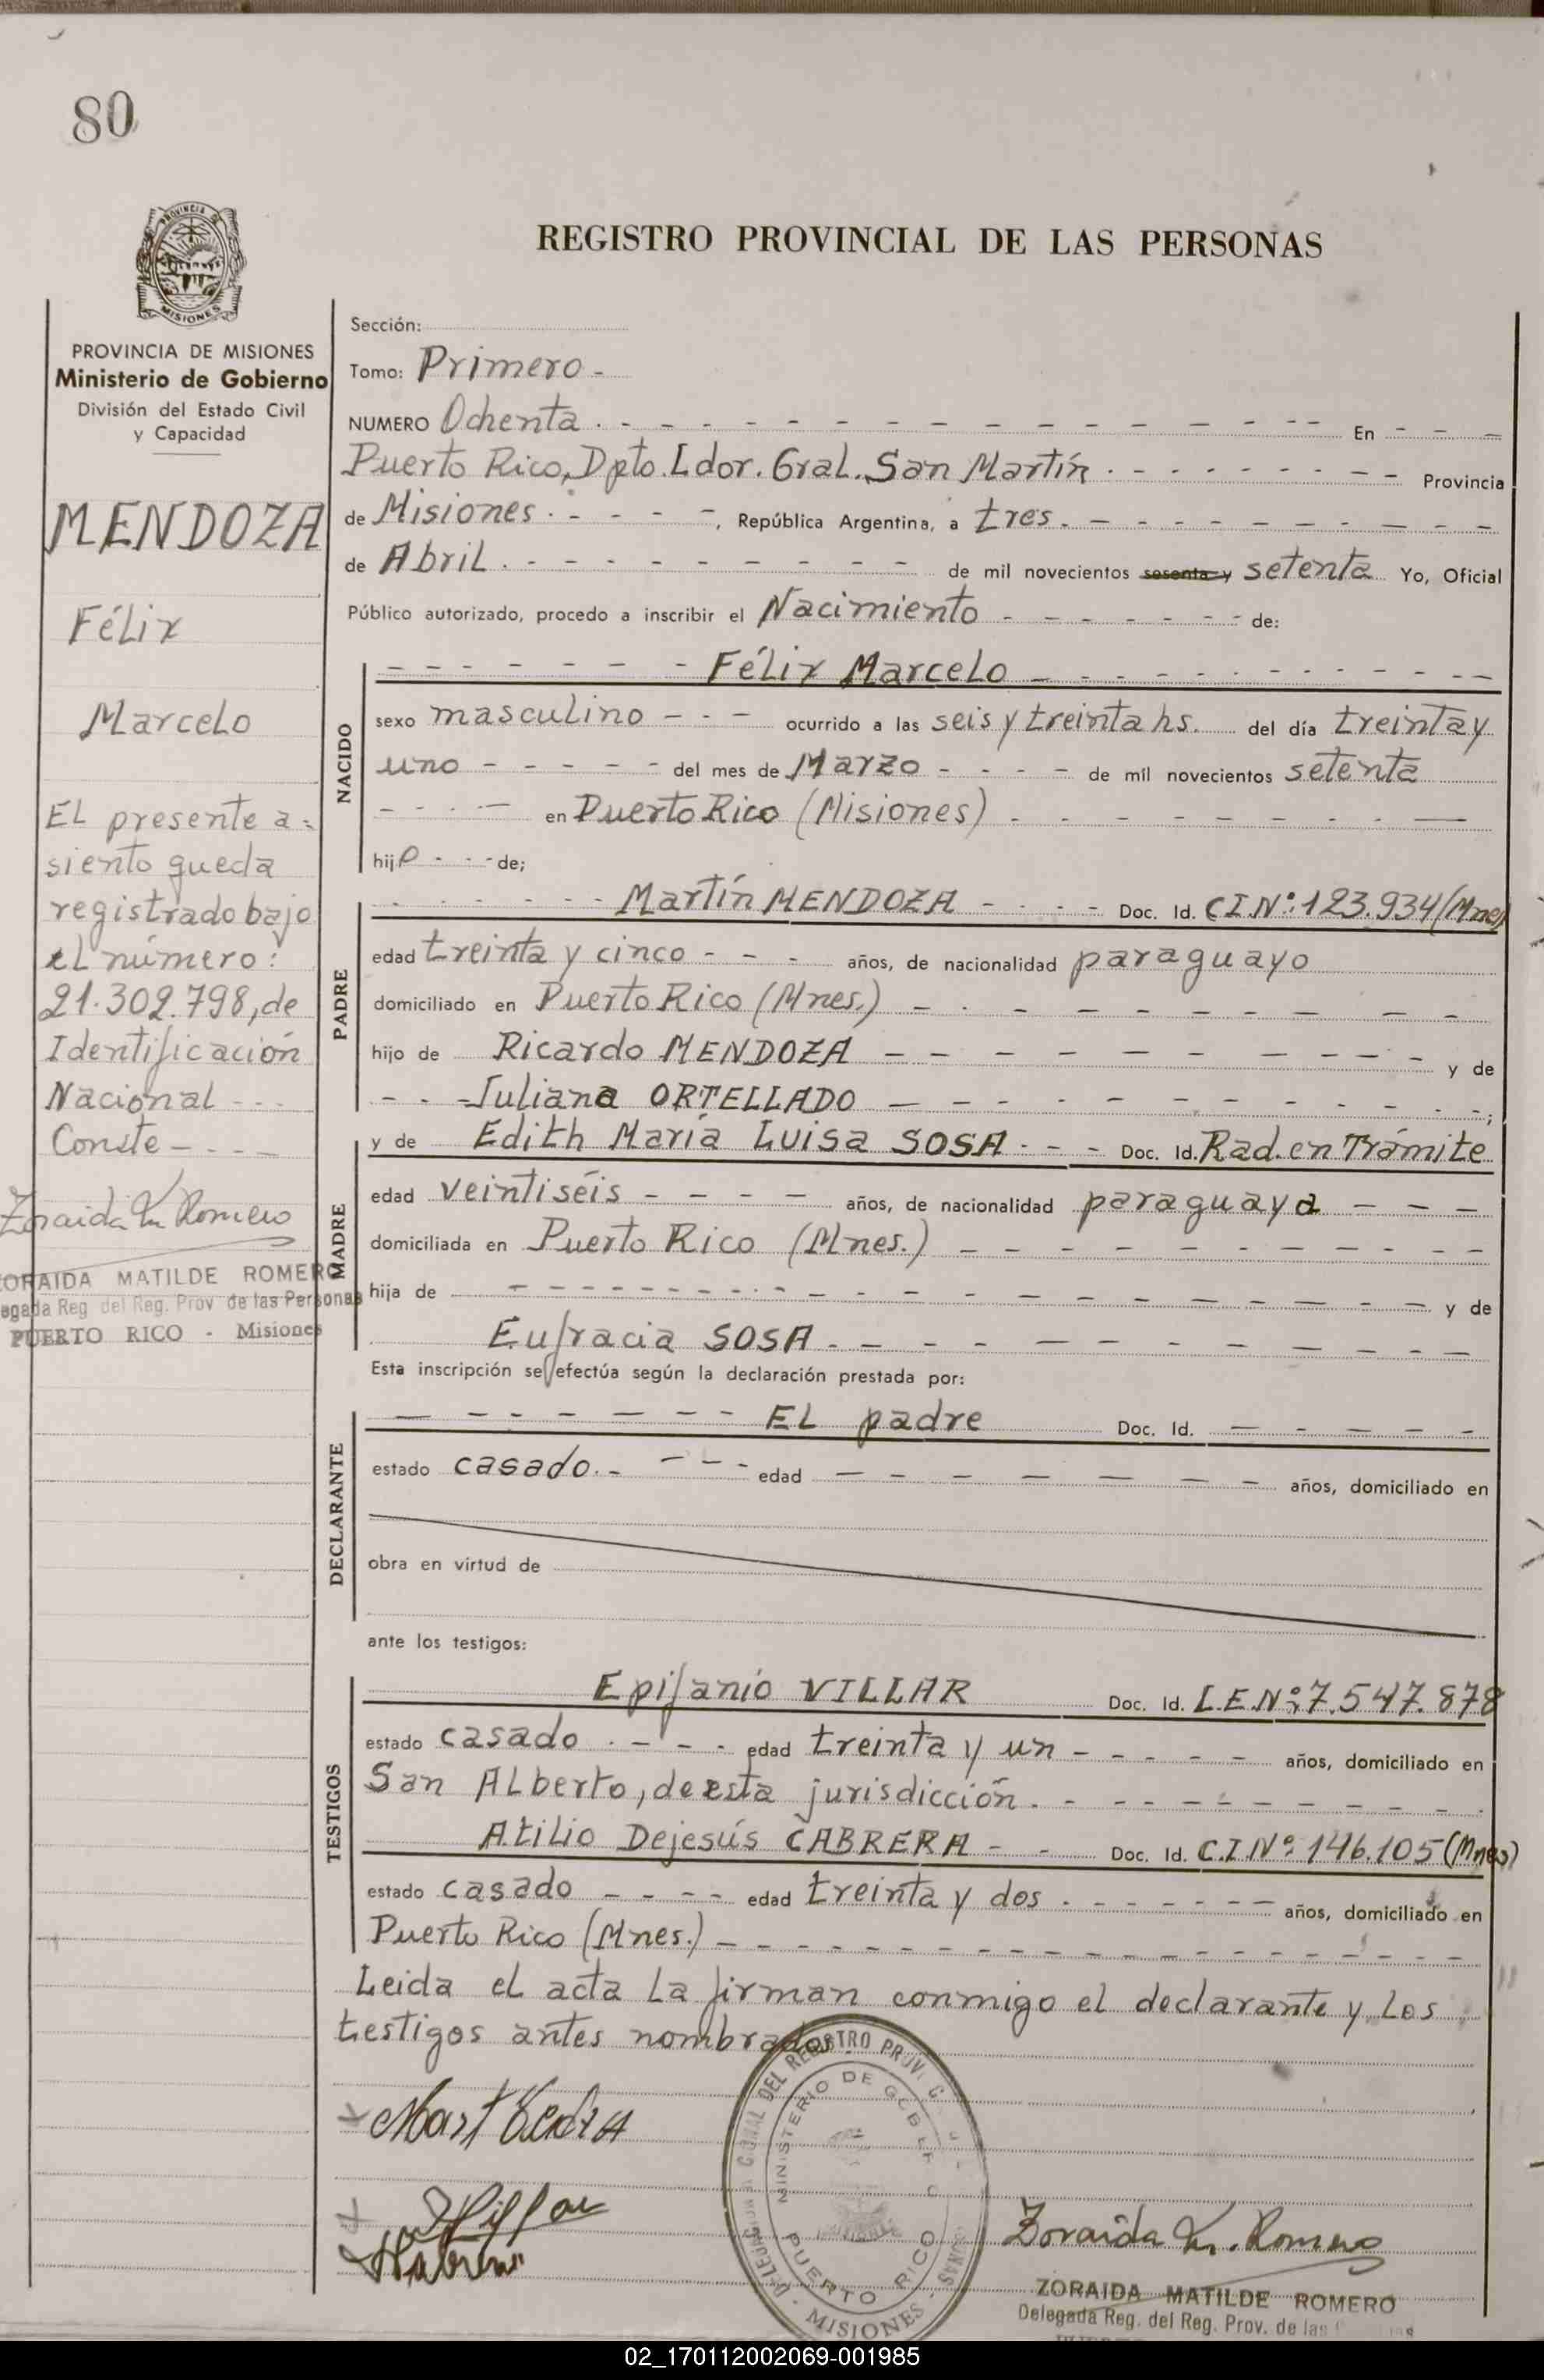 80
PROVINCIA DE MISIONES
PROVINCIA DE MISIONES
Ministerio de Gobierno
División del Estado Civil
y Capacidad
MENDOZA
Félix
Marcelo
El presente a-
siento queda
registrado bajo
el número:
21.302.798, de
Identificación
Nacional - - -
Conste - - - -
Zoraida M. Romero
ZORAIDA MATILDE ROMERO
egada Reg del Reg. Prov de las Personas
PUERTO RICO - Misiones
REGISTRO PROVINCIAL DE LAS PERSONAS
Sección:
Tomo: Primero -
NUMERO Ochenta. - - - - En - - -
Puerto Rico, Dpto. Ldor. Gral. San Martín. - - - - Provincia
de Misiones. - - - -, República Argentina, a tres. - - - -
de Abril. - - - - de mil novecientos sesenta y setenta Yo, Oficial
Público autorizado, procedo a inscribir el Nacimiento - - - - de:
NACIDO
- - - - Félix Marcelo - - - -
sexo masculino - - - ocurrido a las seis y treinta hs. del día treinta y
uno - - - - - del mes de Marzo - - - - de mil novecientos setenta
- - - - en Puerto Rico (Misiones) - - - -
hijo - - - de;
PADRE
- - - - Martín MENDOZA - - - - Doc. Id. CI Nº: 123.934 (Mnes)
edad treinta y cinco - - - años, de nacionalidad paraguayo
domiciliado en Puerto Rico (Mnes.) - - - -
hijo de Ricardo MENDOZA - - - - y de
- - - Juliana ORTELLADO - - - - ;
MADRE
y de Edith María Luisa SOSA - - - Doc. Id. Rad. en Trámite
edad veintiséis - - - - años, de nacionalidad paraguaya - - -
domiciliada en Puerto Rico (Mnes.) - - - -
hija de - - - - y de
Eufracia SOSA. - - - -
Esta inscripción se efectúa según la declaración prestada por:
DECLARANTE
- - - - El padre Doc. Id. - - - -
estado casado. - - - - edad - - - - años, domiciliado en
obra en virtud de
ante los testigos:
TESTIGOS
Epifanio VILLAR Doc. Id. L.E.Nº: 7.547.878
estado casado. - - - edad treinta y un - - - - años, domiciliado en
San Alberto, de esta jurisdicción. - - - -
Atilio Dejesús CABRERA - - Doc. Id. C.I.Nº: 146.105 (Mnes)
estado casado - - - - edad treinta y dos. - - - - años, domiciliado en
Puerto Rico (Mnes.) - - - -
Leida el acta la firman conmigo el declarante y los
testigos antes nombrados.
DEL REGISTRO PROV.
MINISTERIO DE GOBIERNO
PUERTO RICO
- MISIONES -
Zoraida M. Romero
ZORAIDA MATILDE ROMERO
Delegada Reg. del Reg. Prov. de las
02_170112002069-001985